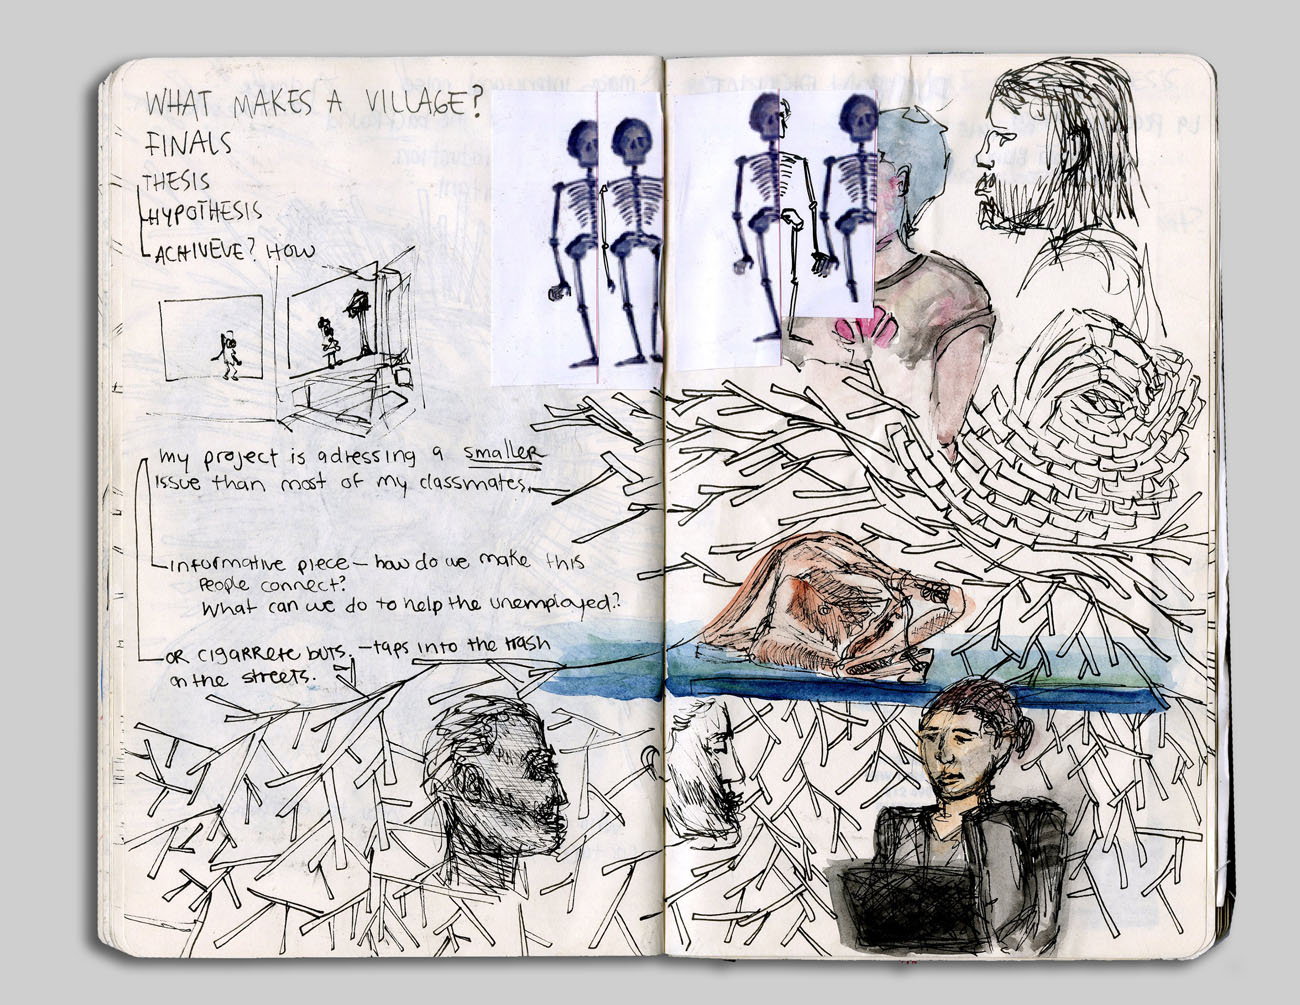 WHAT MAKES A VILLAGE?
FINALS
THESIS
HYPOTHESIS
ACHIVEVE? HOW
my project is adressing a smaller
issue than most of my classmates.
informative piece — how do we make this
people connect?
What can we do to help the unemployed?
OR cigarrete buts. — taps into the trash
on the streets.